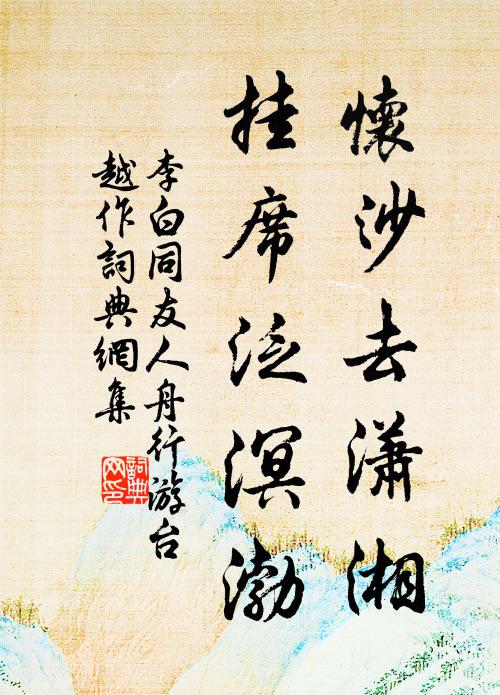 懷沙去瀟湘
挂席泛溟渤
李白同友人舟行游台
越作詞典網集
詞典
网印